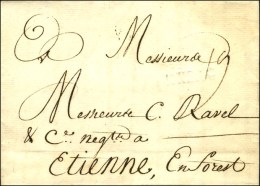 Messieurs
Messieurs C. Ravel
& Ce negts a
Etienne, En forest